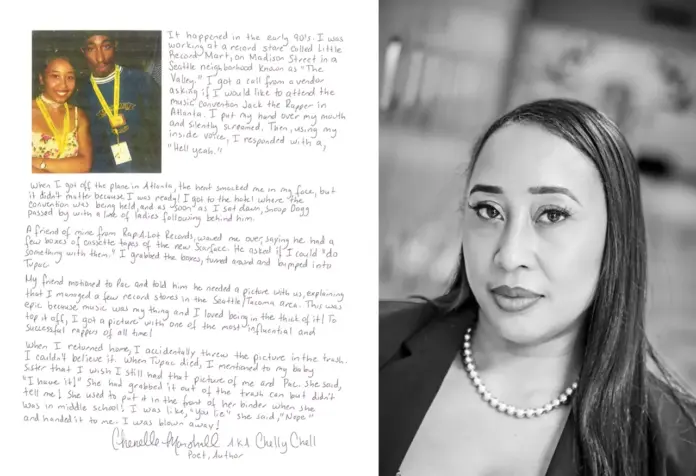 It happened in the early 90's. I was
working at a record store called Little
Record Mart, on Madison Street in a
Seattle neighborhood known as "The
Valley." I got a call from a vendor
asking if I would like to attend the
music convention Jack the Rapper in
Atlanta. I put my hand over my mouth
and silently screamed. Then, using my
inside voice, I responded with a,
"Hell yeah."
When I got off the plane in Atlanta, the heat smacked me in my face, but
it didn't matter because I was ready! I got to the hotel where the
convention was being held, and as soon as I sat down, Snoop Dogg
passed by with a lot of ladies following behind him.
A friend of mine from Rap A Lot Records, waved me over, saying he had a
few boxes of cassette tapes of the new Scarface. He asked if I could "do
something with them." I grabbed the boxes, turned around and bumped into
Tupac.
My friend motioned to Pac and told him he needed a picture with us, explaining
that I managed a few record stores in the Seattle/Tacoma area. This was
epic because music was my thing and I loved being in the thick of it! To
top it off, I got a picture with one of the most influential and
successful rappers of all time!
When I returned home, I accidentally threw the picture in the trash.
I couldn't believe it. When Tupac died, I mentioned to my baby
sister that I wish I still had that picture of me and Pac. She said,
"I have it!" She had grabbed it out of the trash can but didn't
tell me! She used to put it in the front of her binder when she
was in middle school! I was like, "you lie" she said, "Nope"
and handed it to me. I was blown away!
Chenelle Marshall AKA Chelly Chell
Poet, Author